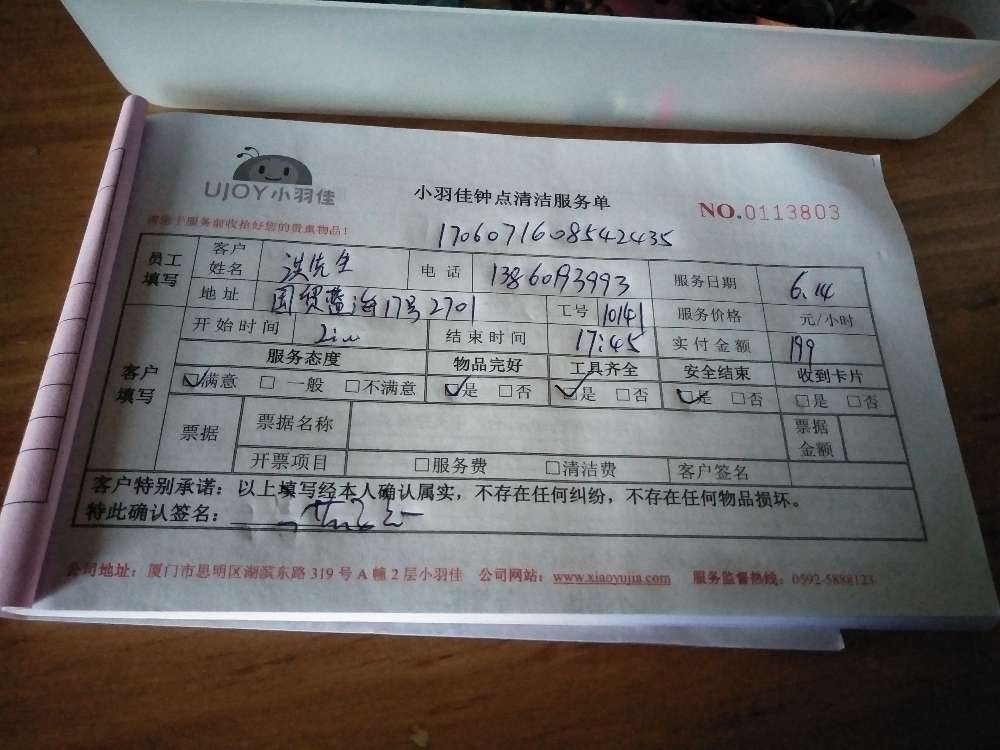 UJOY小羽佳
小羽佳钟点清洁服务单
NO.0113803
请您于服务前收拾好您的贵重物品！
1706071608542435
员工填写 客户姓名 洪先生 电话 13860193993 服务日期 6.14
地址 国贸蓝海17号2701 工号 10141 服务价格 元/小时
客户填写 开始时间 结束时间 17:45 实付金额 199
服务态度 物品完好 工具齐全 安全结束 收到卡片
☑满意 □一般 □不满意 ☑是 □否 ☑是 □否 ☑是 □否 □是 □否
票据 票据名称 票据金额
开票项目 □服务费 □清洁费 客户签名
客户特别承诺：以上填写经本人确认属实，不存在任何纠纷，不存在任何物品损坏。
特此确认签名：
公司地址：厦门市思明区湖滨东路 319 号 A 幢 2 层小羽佳 公司网站：www.xiaoyujia.com 服务监督热线：0592-5888123